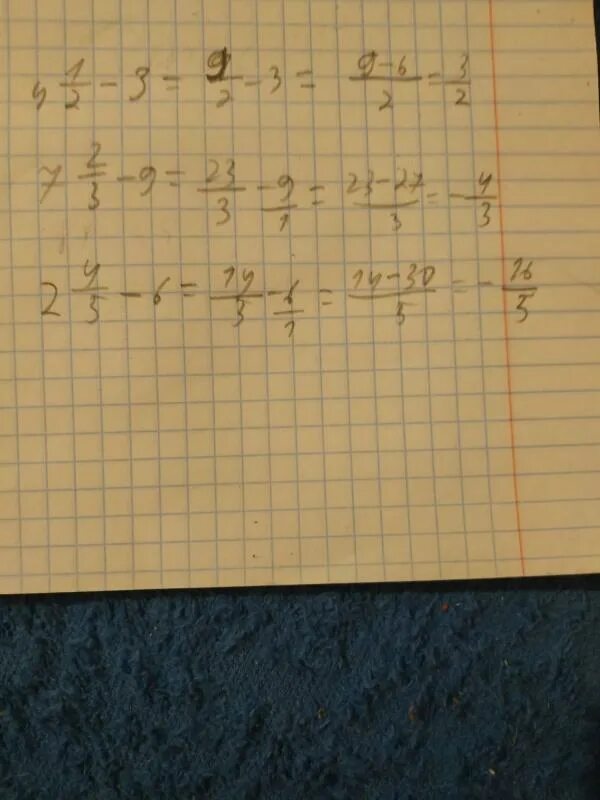 4 1/2 - 3 = 9/2 - 3 = (9-6)/2 = 3/2
7 2/3 - 9 = 23/3 - 9/1 = (23-27)/3 = -4/3
2 4/5 - 6 = 14/5 - 6/1 = (14-30)/5 = -16/5